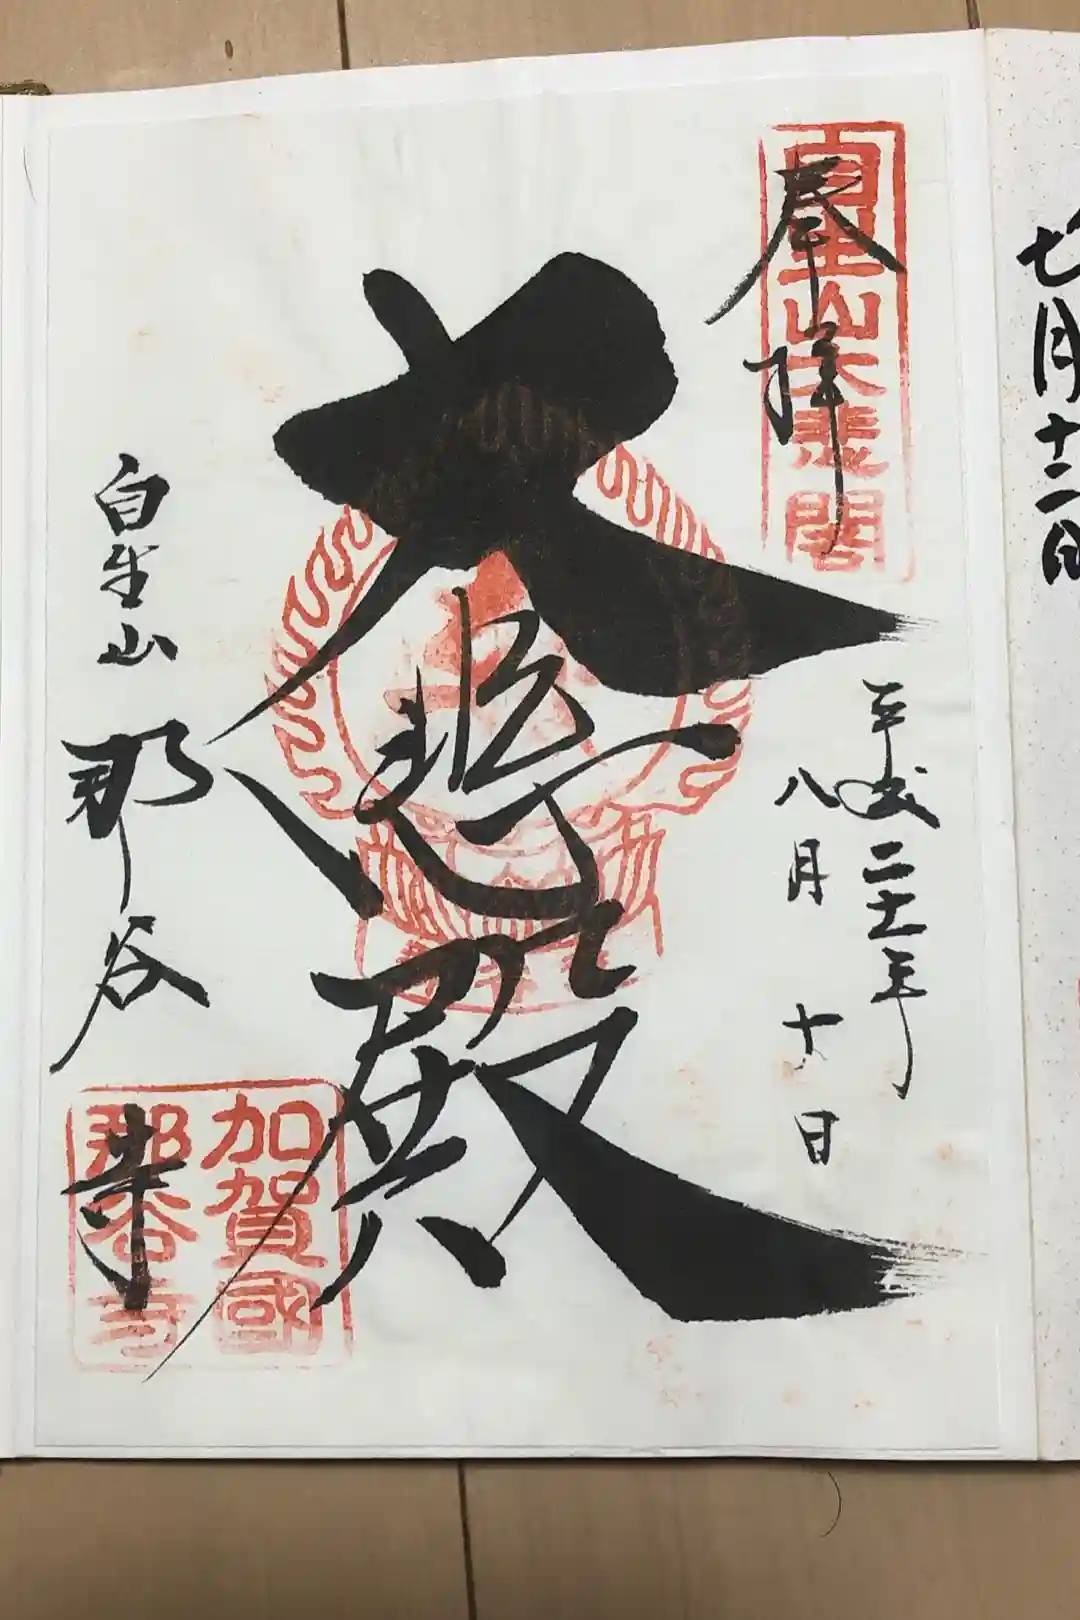 七月十二日
奉拝
自生山大悲閣
平成二十一年
八月十八日
大悲殿
自生山 那谷寺
加賀國
那谷寺